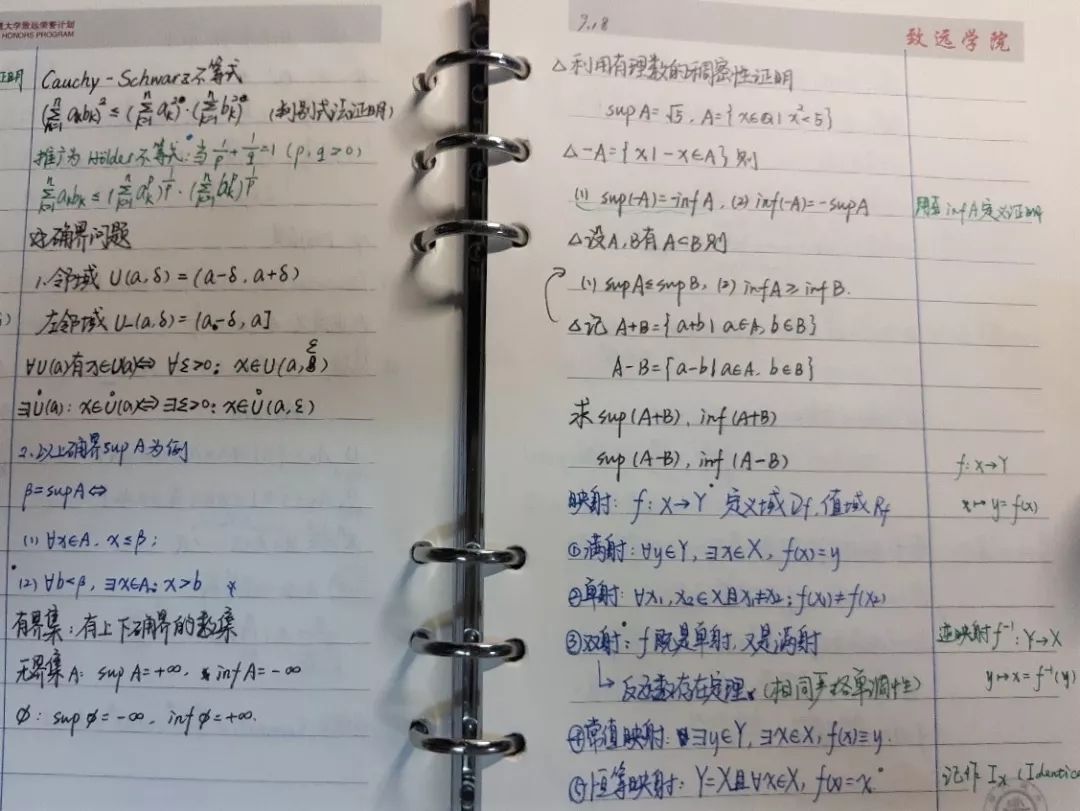 大学致远荣誉计划
HONORS PROGRAM
证明
Cauchy-Schwarz不等式
(∑_{k=1}^n a_k b_k)^2 ≤ (∑_{k=1}^n a_k^2)·(∑_{k=1}^n b_k^2) (判别式法证明)
推广为 Hölder不等式: 当 1/p + 1/q = 1 (p, q > 0)
∑_{k=1}^n a_k b_k ≤ (∑_{k=1}^n a_k^p)^{1/p}·(∑_{k=1}^n b_k^p)^{1/p}
确界问题
1.邻域 U(a,δ)=(a-δ, a+δ)
左邻域 U_-(a,δ)=(a-δ, a]
∀U(a)有x∈U(a)⇔ ∀ε>0: x∈U(a,ε)
∃Ů(a): x∈Ů(a)⇔∃ε>0: x∈Ů(a,ε)
2.以上确界sup A为例
β=sup A⇔
(1) ∀x∈A, x≤β;
(2) ∀b<β, ∃x∈A: x>b
有界集:有上下确界的数集
无界集A: sup A=+∞, inf A=-∞
∅: sup ∅=-∞, inf ∅=+∞.
9.18
致远学院
△利用有理数的稠密性证明
sup A=√5, A={x∈Q| x²<5}
△-A={x|-x∈A}则
(1) sup(-A)=-inf A, (2) inf(-A)=-sup A
用至 inf A 定义证明
△设A,B有A⊂B则
(1) sup A≤sup B, (2) inf A≥inf B.
△记 A+B={a+b| a∈A, b∈B}
A-B={a-b| a∈A, b∈B}
求 sup(A+B), inf(A+B)
sup(A-B), inf(A-B)
f: X→Y
x↦y=f(x)
映射: f: X→Y 定义域Df, 值域Rf
①满射: ∀y∈Y, ∃x∈X, f(x)=y
②单射: ∀x₁, x₂∈X且x₁≠x₂; f(x₁)≠f(x₂)
③双射: f既是单射,又是满射
逆映射f⁻¹: Y→X
y↦x=f⁻¹(y)
↳反函数存在定理.(相同严格单调性)
④常值映射: ∃y∈Y, ∃x∈X, f(x)≡y.
⑤恒等映射: Y=X且∀x∈X, f(x)=x.
记作 I_X (Identica